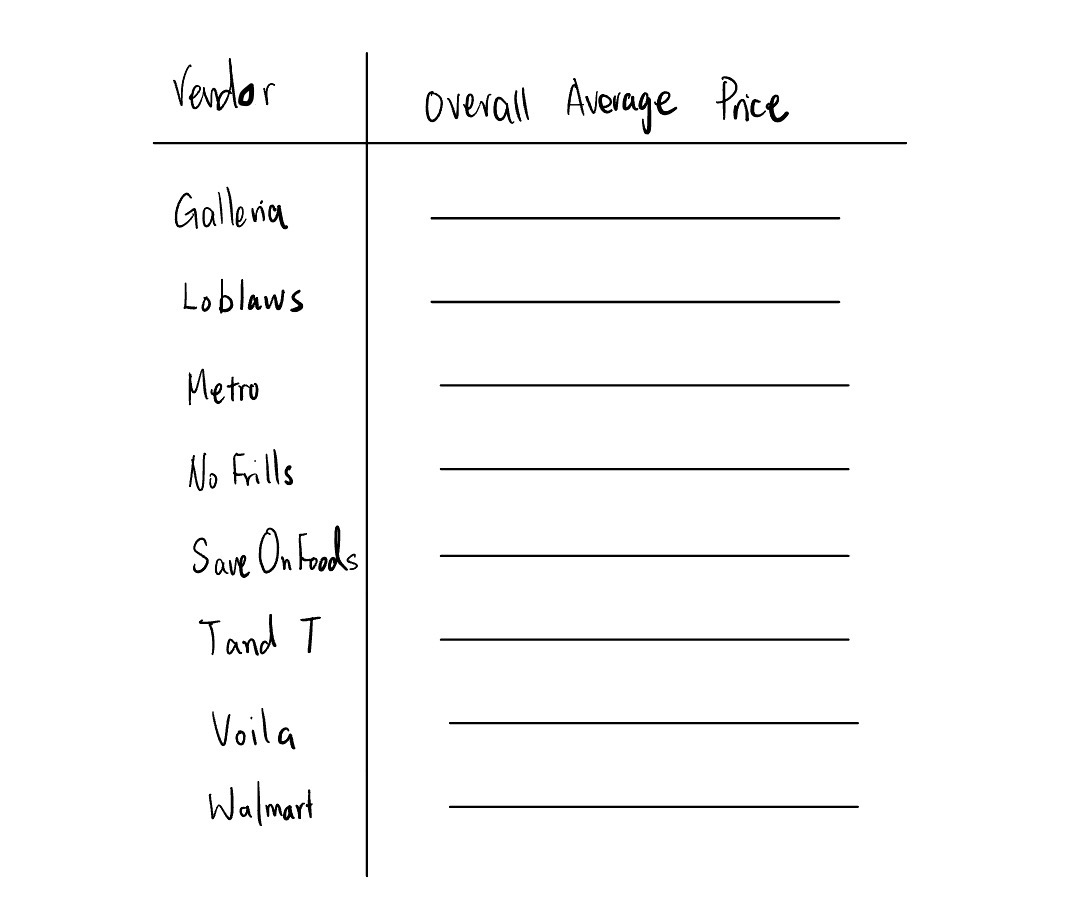 Vendor Overall Average Price
Galleria
Loblaws
Metro
No Frills
Save On Foods
T and T
Voila
Walmart